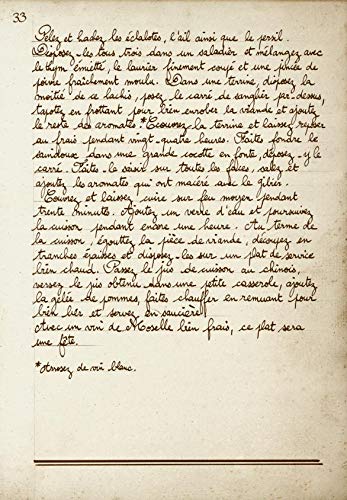 33
Pelez et hachez les échalotes, l'ail ainsi que le persil.
Disposez-les tous trois dans un saladier et mélangez avec
le thym émietté, le laurier finement coupé et une pincée de
poivre fraîchement moulu. Dans une terrine, disposez la
moitié de ce hachis, posez le carré de sanglier par-dessus,
tapotez en frottant pour bien enrober la viande et ajoutez
le reste des aromates.*Couvrez la terrine et laissez reposer
au frais pendant vingt-quatre heures. Faites fondre le
saindoux dans une grande cocotte en fonte, déposez-y le
carré. Faites-le saisir sur toutes les faces, salez et
ajoutez les aromates qui ont macéré avec le gibier.
Couvrez et laissez cuire sur feu moyen pendant
trente minutes. Ajoutez un verre d'eau et poursuivez
la cuisson pendant encore une heure. Au terme de
la cuisson, égouttez la pièce de viande, découpez en
tranches épaisses et disposez-les sur un plat de service
bien chaud. Passez le jus de cuisson au chinois,
versez le jus obtenu dans une petite casserole, ajoutez
la gelée de pommes, faites chauffer en remuant pour
bien lier et servez en saucière.
Avec un vin de Moselle bien frais, ce plat sera
une fête.
*Arrosez de vin blanc.